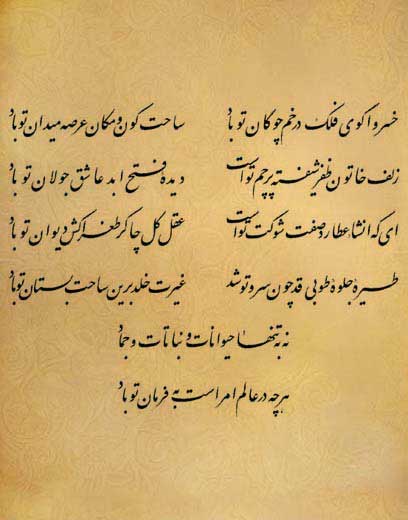 خسروا گوی فلک در خم چوکان تو باد ساحت کون و مکان عرصه میدان تو باد
زلف خاتون ظفر شیفته پرچم توست دیده فتح ابد عاشق جولان تو باد
ای که انشا عطارد صفت شوکت توست عقل کل چاکر طغراکش دیوان تو باد
طیره جلوه طوبی قد چون سرو تو شد غیرت خلد برین ساحت بستان تو باد
نه به تنها حیوانات و نباتات و جماد
هرچه در عالم امر است به فرمان تو باد